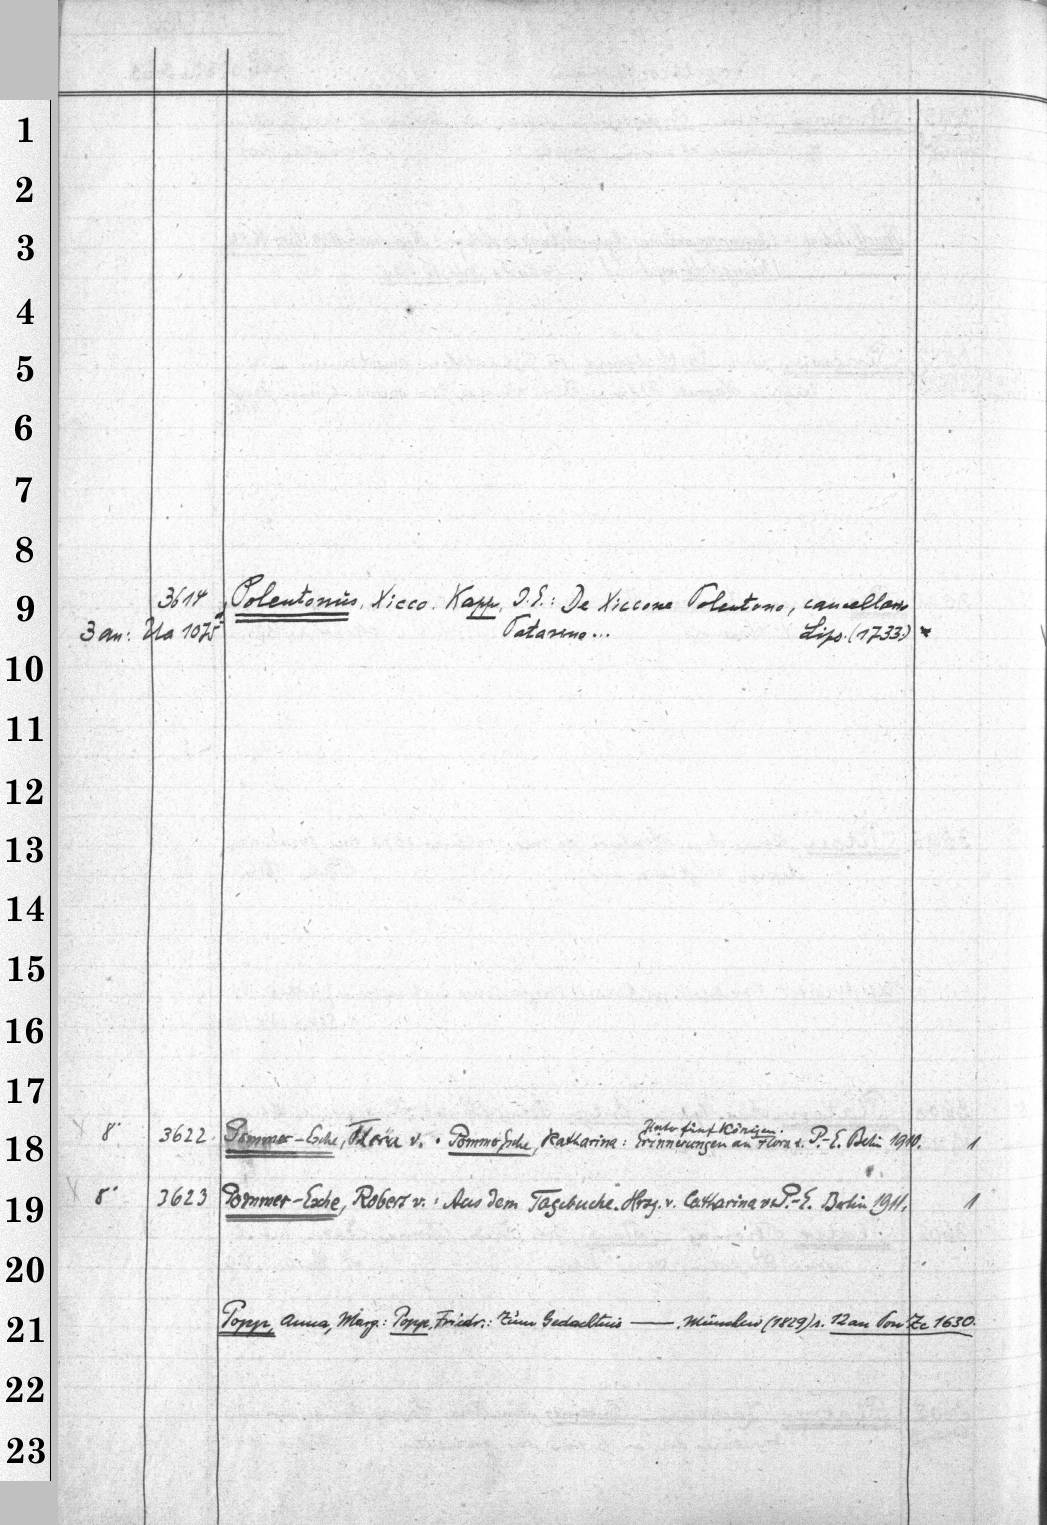 1
2
3
4
5
6
7
8
9 3614 Polentonus, Xicco. Kapp, J. E.: De Xiccone Polentono, cancellario
3 an: Ua 1075 Patavino... Lips. (1733)
10
11
12
13
14
15
16
17
Unter fünf Königen.
18 8° 3622 Pommer-Esche, Flora v. Pommer Esche, Katharina: Erinnerungen an Flora v. P.-E. Berlin 1910. 1
19 8° 3623 Pommer-Esche, Robert v.: Aus dem Tagebuche. Hrsg. v. Catharina v. P.-E. Berlin 1911. 1
20
21 Popp, Anna, Marg.: Popp, Friedr.: Zum Gedächtnis —— . München (1829) s. 12 an Pon Zc 1630.
22
23